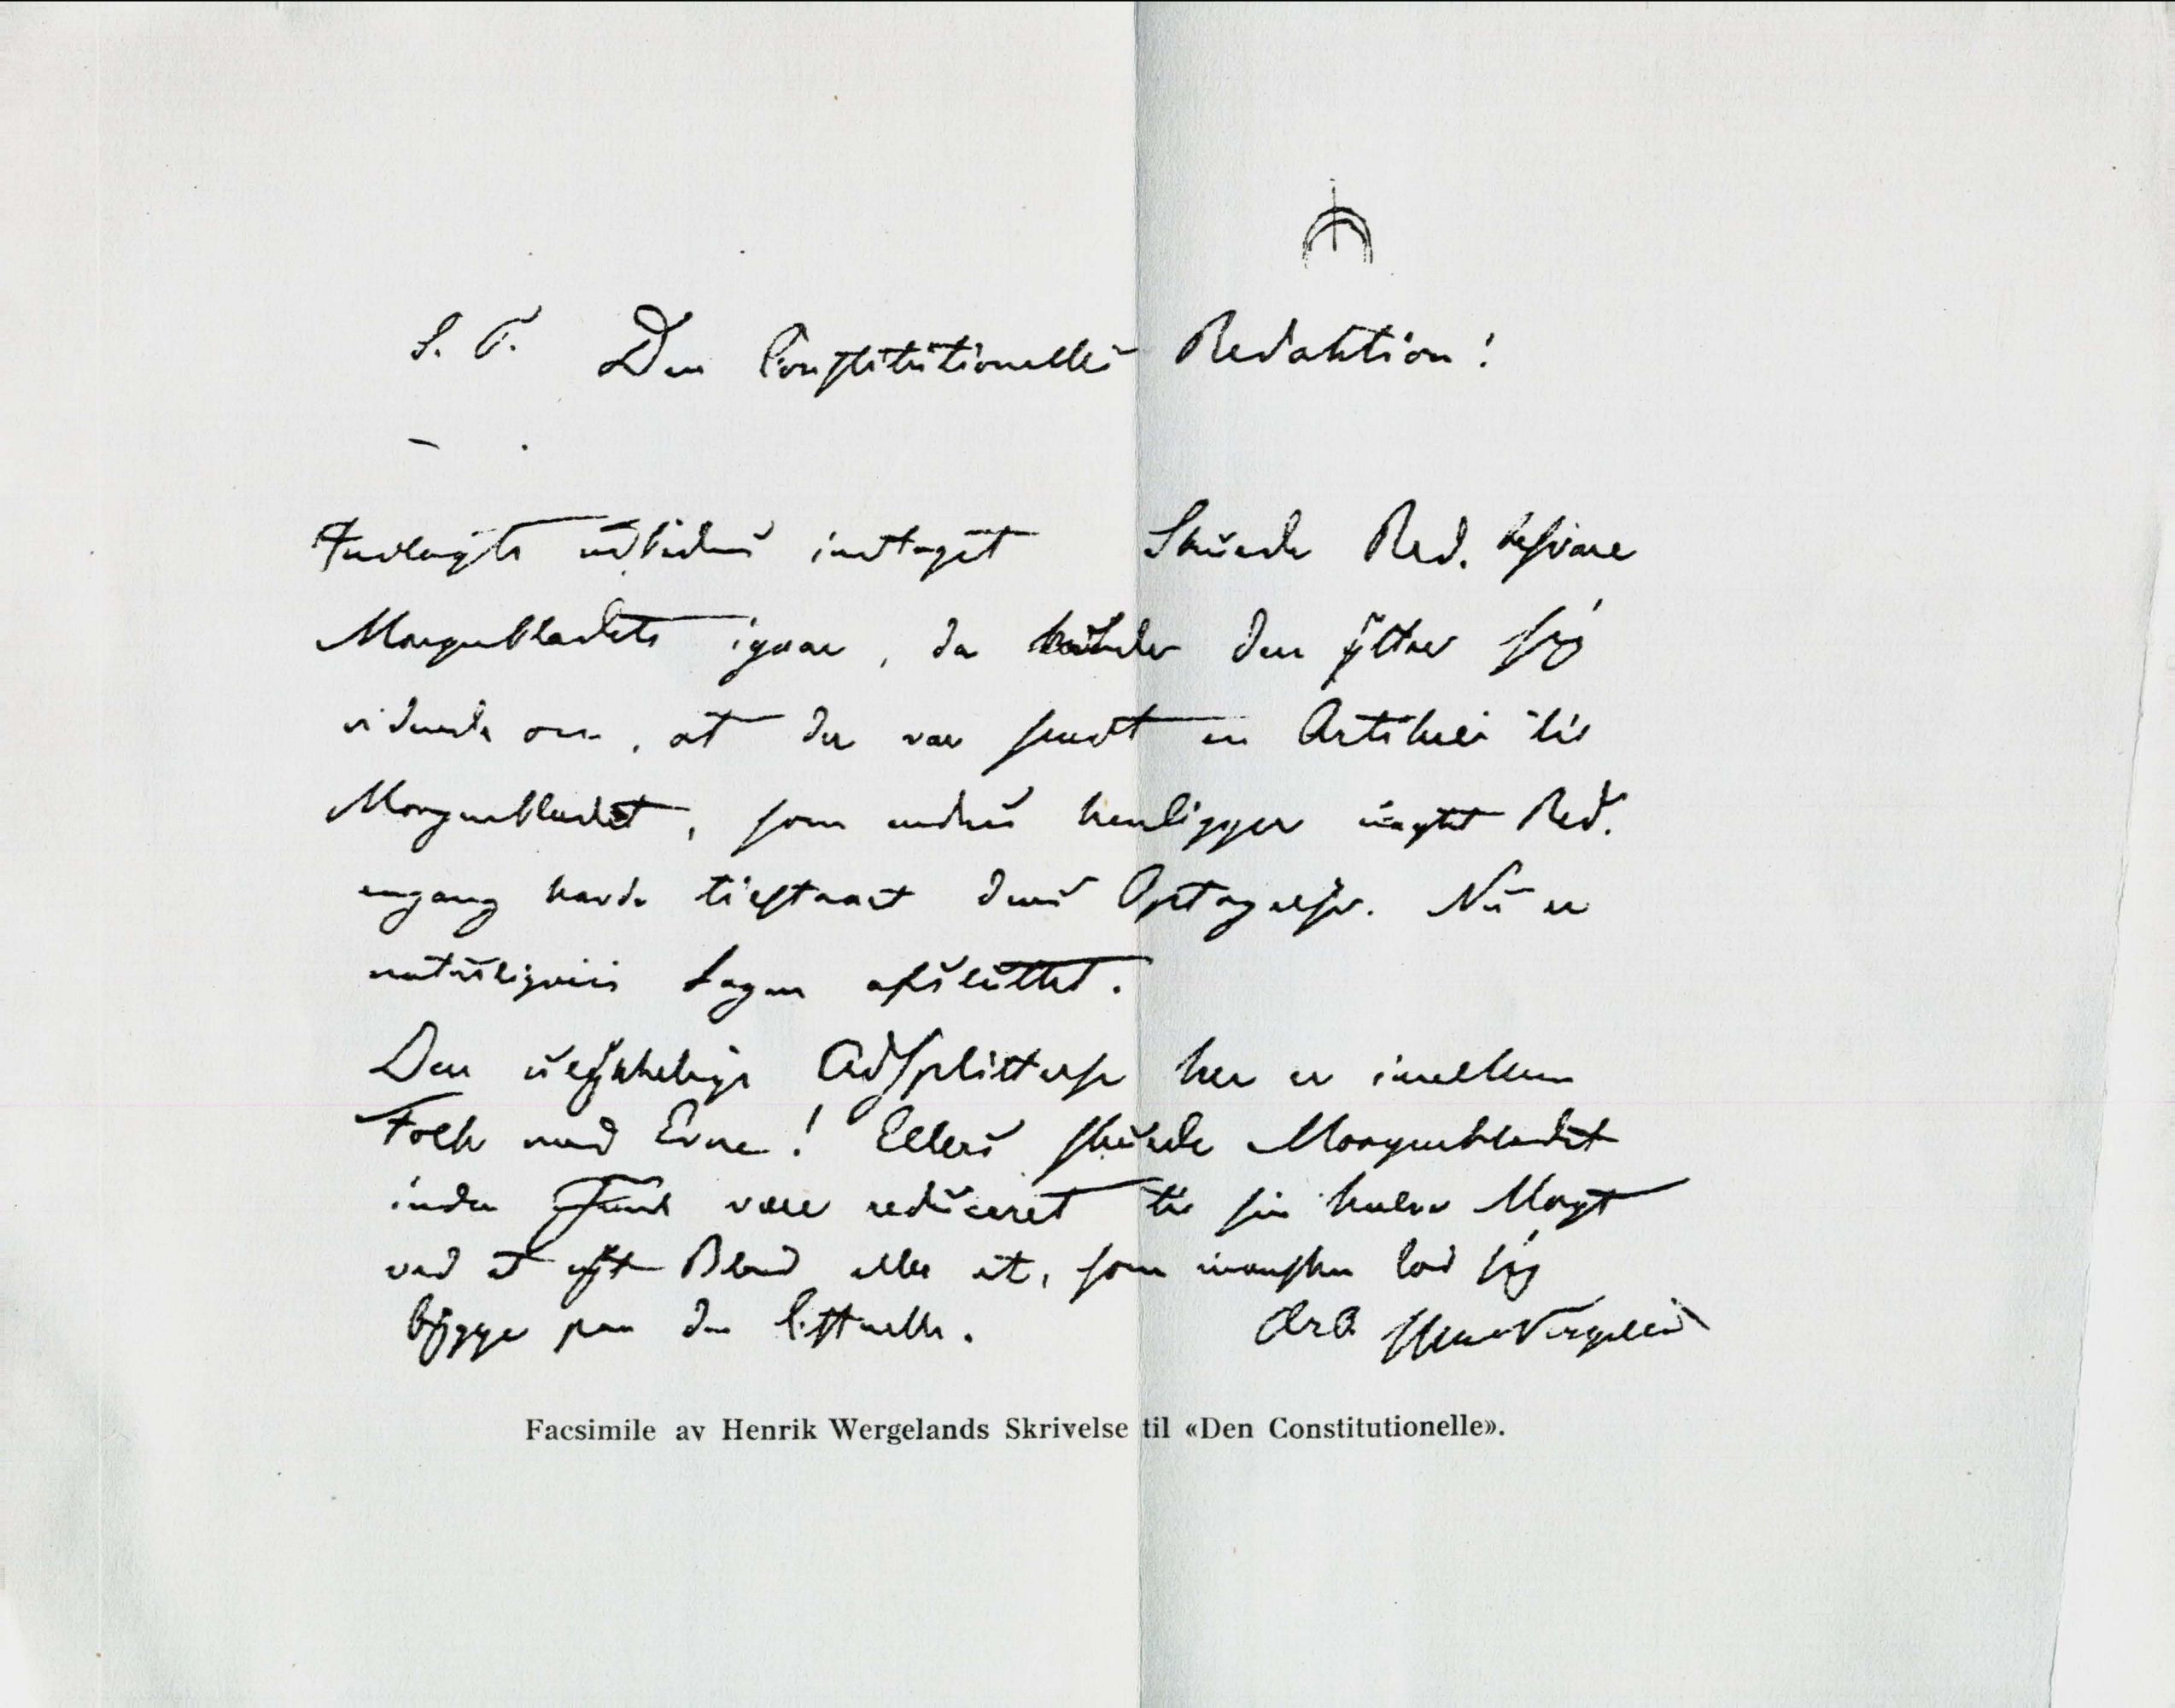 S. T. Den Constitutionelles Redaktion!
Indlagte udbedes indtaget Skulde Red. besvare
Morgenbladets igaar, da den yttrer sig
vidende om, at der var sendt en Artikel til
Morgenbladet, som endnu henligger uagtet Red.
engang havde tilstaaet dens Optagelse. Nu er
naturligviis Sagen afsluttet.
Den ulykkelige Adsplittelse her er imellem
Folk med Evne! Ellers skulde Morgenbladet
inden Juni være reduceret til sin halve Magt
ved et nyt Blad eller et, som maaskee lod sig
bygge paa det
ærb Henr Wergeland
Facsimile av Henrik Wergelands Skrivelse til «Den Constitutionelle».